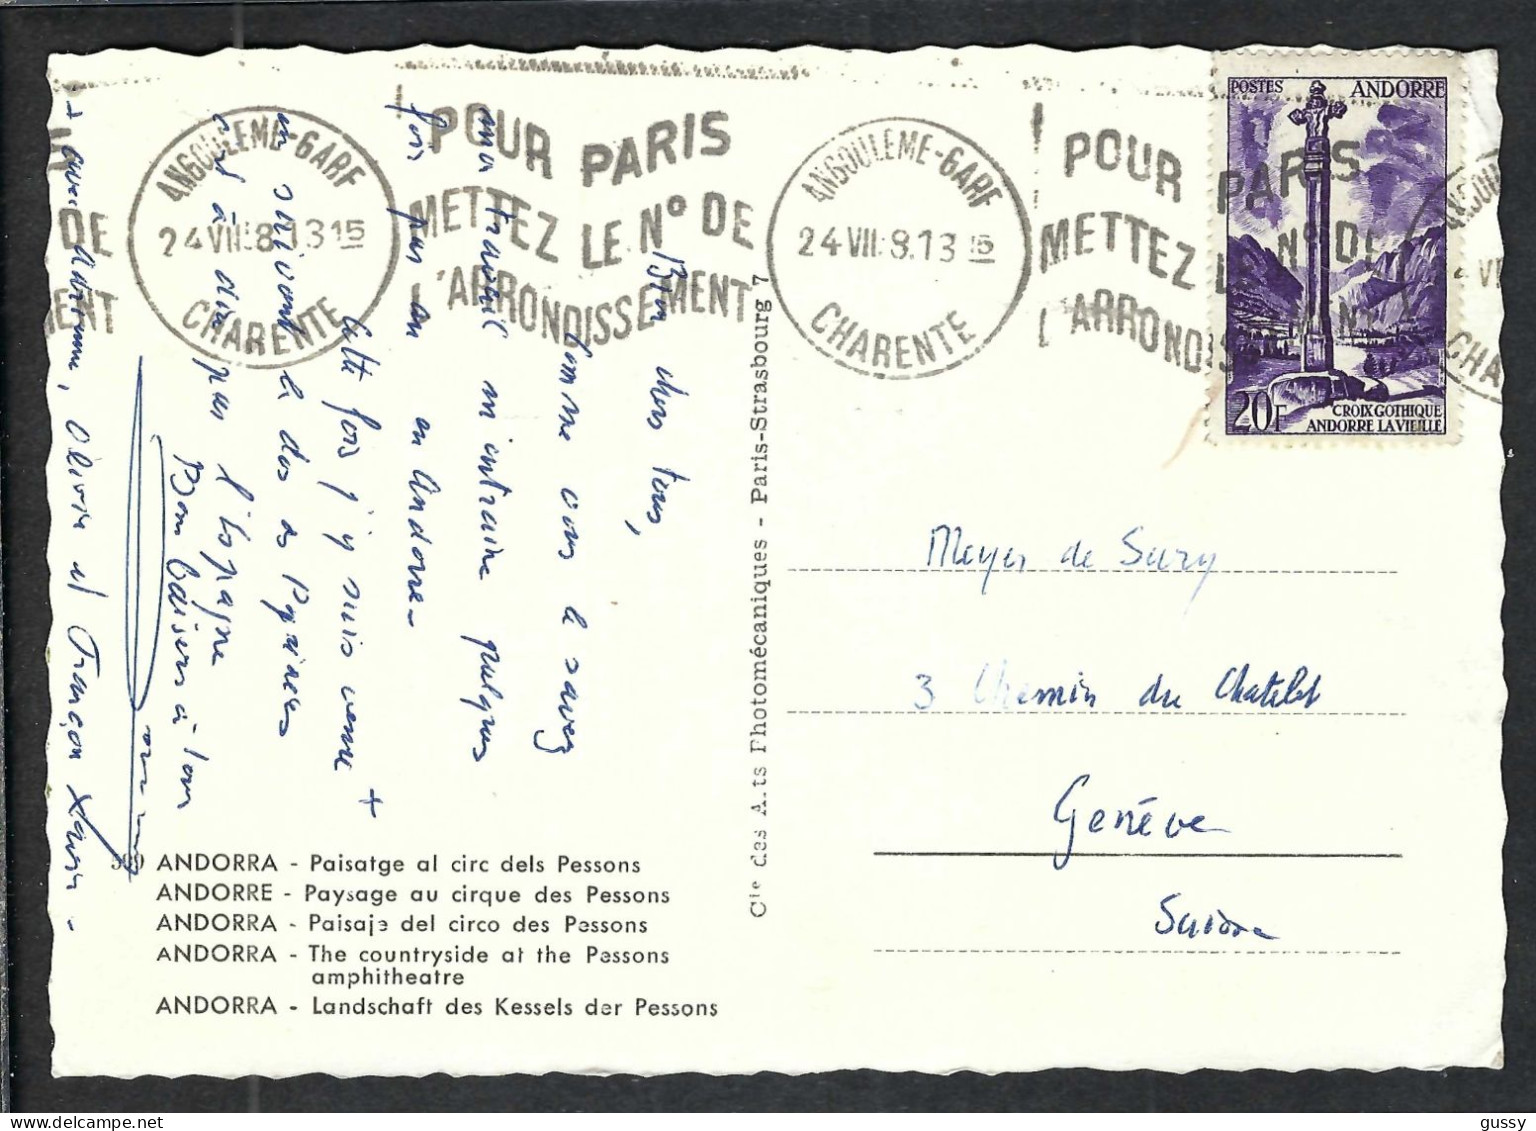 ANGOULEME-GARE
24 VII. 8.13 15
CHARENTE
POUR PARIS
METTEZ LE N° DE
L'ARRONDISSEMENT
ANGOULEME-GARE
24 VII. 8.13 15
CHARENTE
POUR PARIS
METTEZ LE N° DE
L'ARRONDISSEMENT
POSTES ANDORRE
20F
CROIX GOTHIQUE
ANDORRE LA VIEILLE
Bien chers tous,
Comme vous le savez
mon travail m'entraine quelques
fois par an en Andorre -
Cette fois j'y suis venue +
en suivant le dos des Pyrénées
c'est à dire par l'Espagne
Bons baisers à tous
+ avec Adrienne, Olivier et François Xavier -
ANDORRA - Paisatge al circ dels Pessons
ANDORRE - Paysage au cirque des Pessons
ANDORRA - Paisaje del circo des Pessons
ANDORRA - The countryside at the Pessons
amphitheatre
ANDORRA - Landschaft des Kessels der Pessons
Cie des Arts Photomécaniques - Paris-Strasbourg 7
Meyer de Sury
3 Chemin du Chatelet
Genève
Suisse
gussy